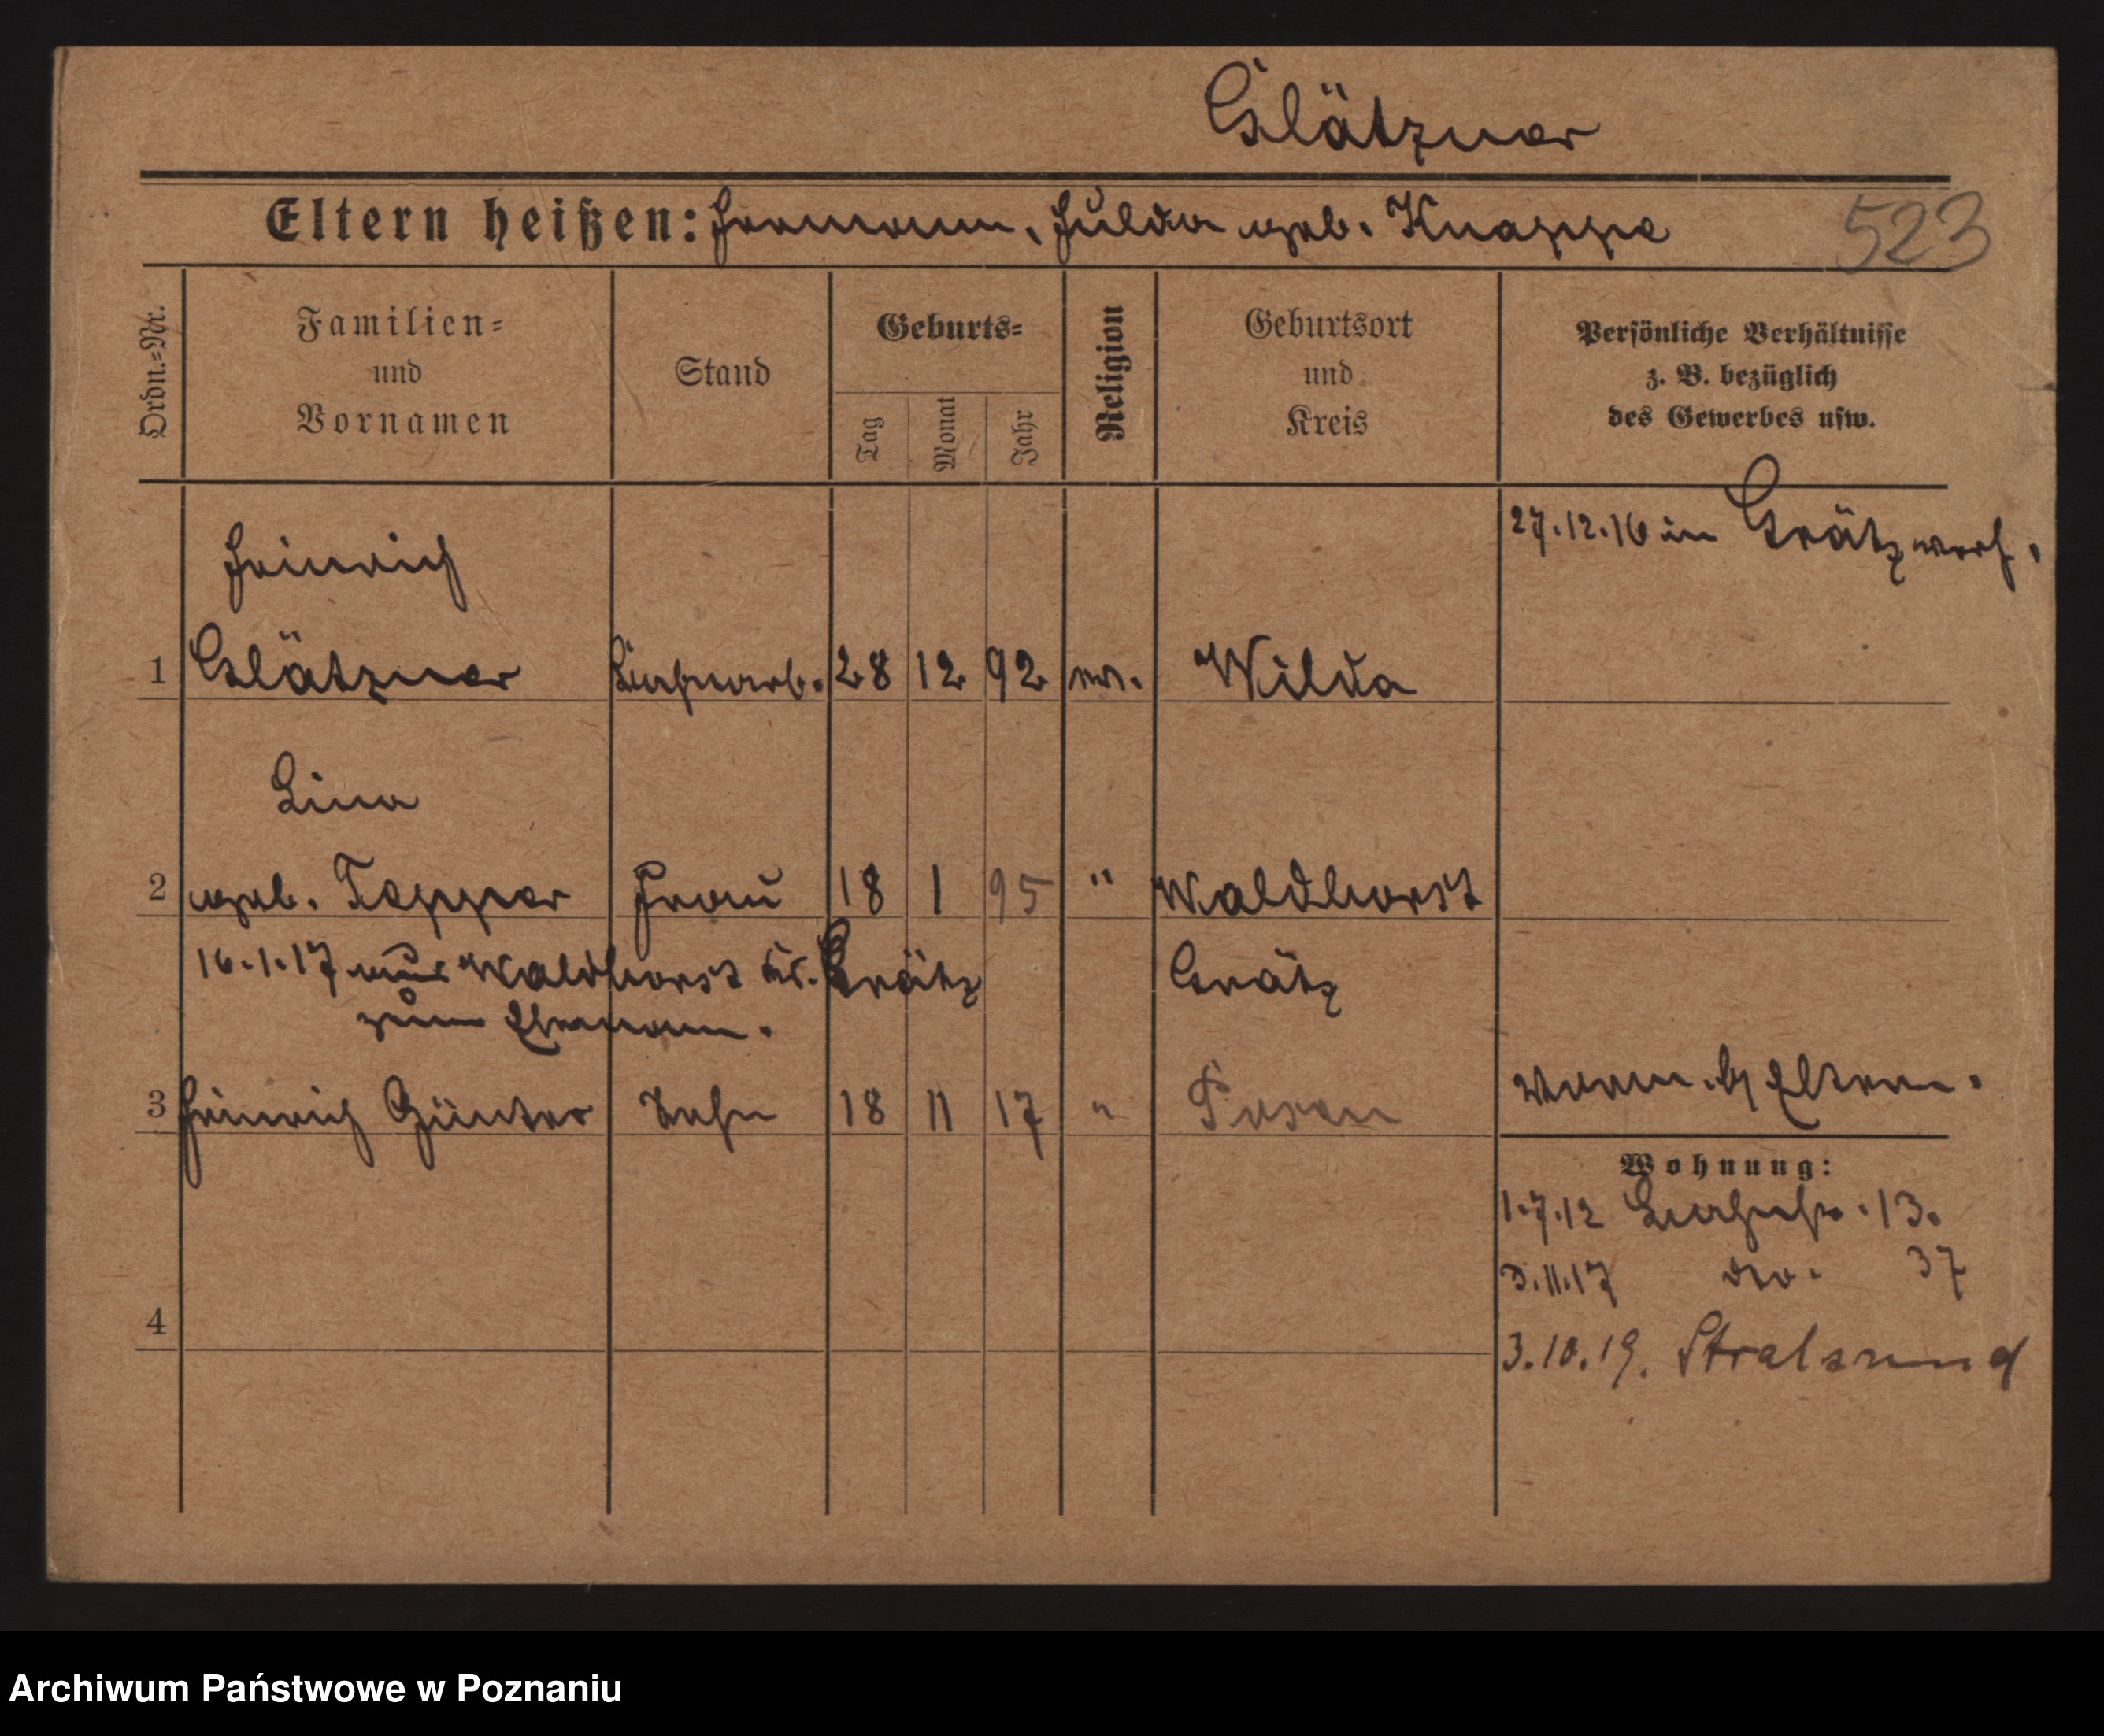 Glätzner
Eltern heißen: Hermann, Hulda geb. Knappe
523
Ordn.=Nr.
Familien=
und
Vornamen
Stand
Geburts=
Tag
Monat
Jahr
Religion
Geburtsort
und
Kreis
Persönliche Verhältnisse
z. B. bezüglich
des Gewerbes usw.
27.12.16 in Grätz verh.
Heinrich
1 Glätzner Bahnarb. 28 12 92 ev. Wilda
Lina
2 geb. Tepper Frau 18 1 95 " Waldhorst
16.1.17 aus Waldhorst Kr. Grätz
Grätz
zum Ehemann.
3 Heinrich Günter Sohn 18 11 17 " Posen
b/ Eltern.
Wohnung:
1.7.12 Bachstr. 13.
3.11.17 do. 37
4
3.10.19. Stralsund
Archiwum Państwowe w Poznaniu